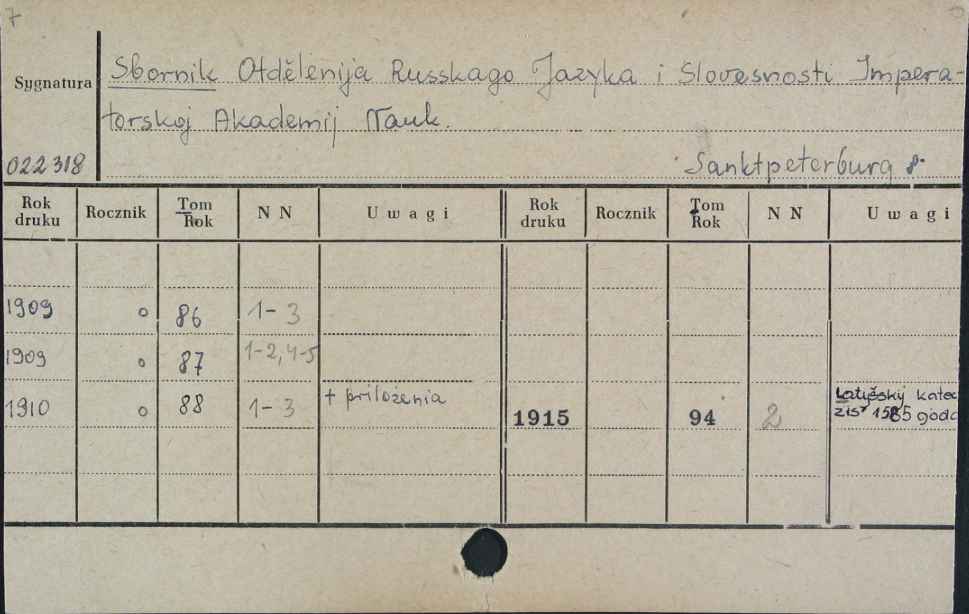 7
Sygnatura
Sbornik Otdělenija Russkago Jazyka i Slovesnosti Impera-
torskoj Akademij Nauk.
022318
Sanktpeterburg 8°
Rok druku Rocznik Tom Rok N N Uwagi Rok druku Rocznik Tom Rok N N Uwagi
1909 o 86 1-3
1909 o 87 1-2, 4-5
1910 o 88 1-3 + priloženia
1915 94 2 Latyšskij katec
zis 1585 goda